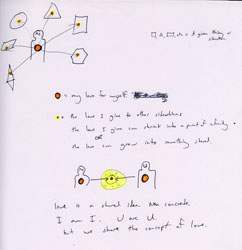 □, △, ▱, etc. = A given thing or situation
= my love for myself
= the love I give to other situations
the love I give can shoot into a point of infinity
OR
the love can grow into something shared.
M
U
love is a shared idea. Non concrete.
I am I. U are U.
but we share the concept of love.